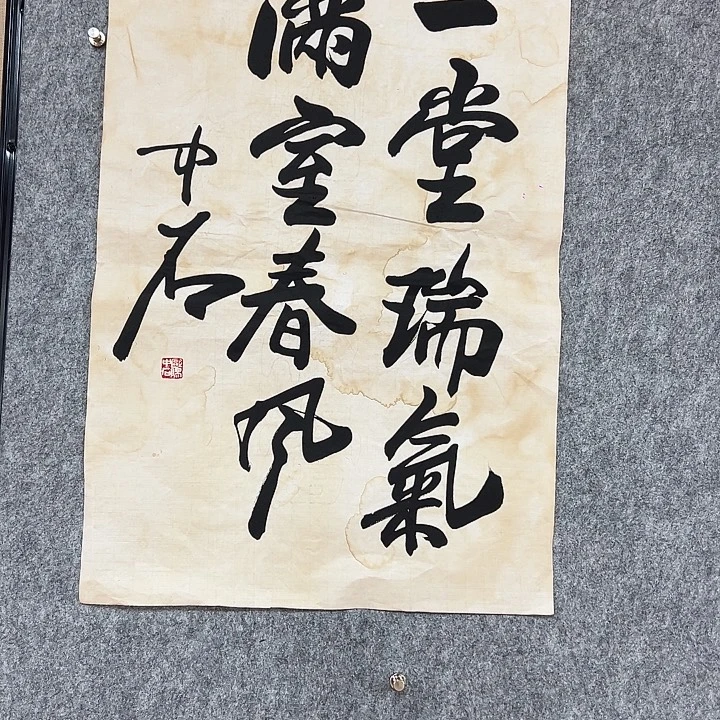 一堂瑞氣
滿室春风
中石